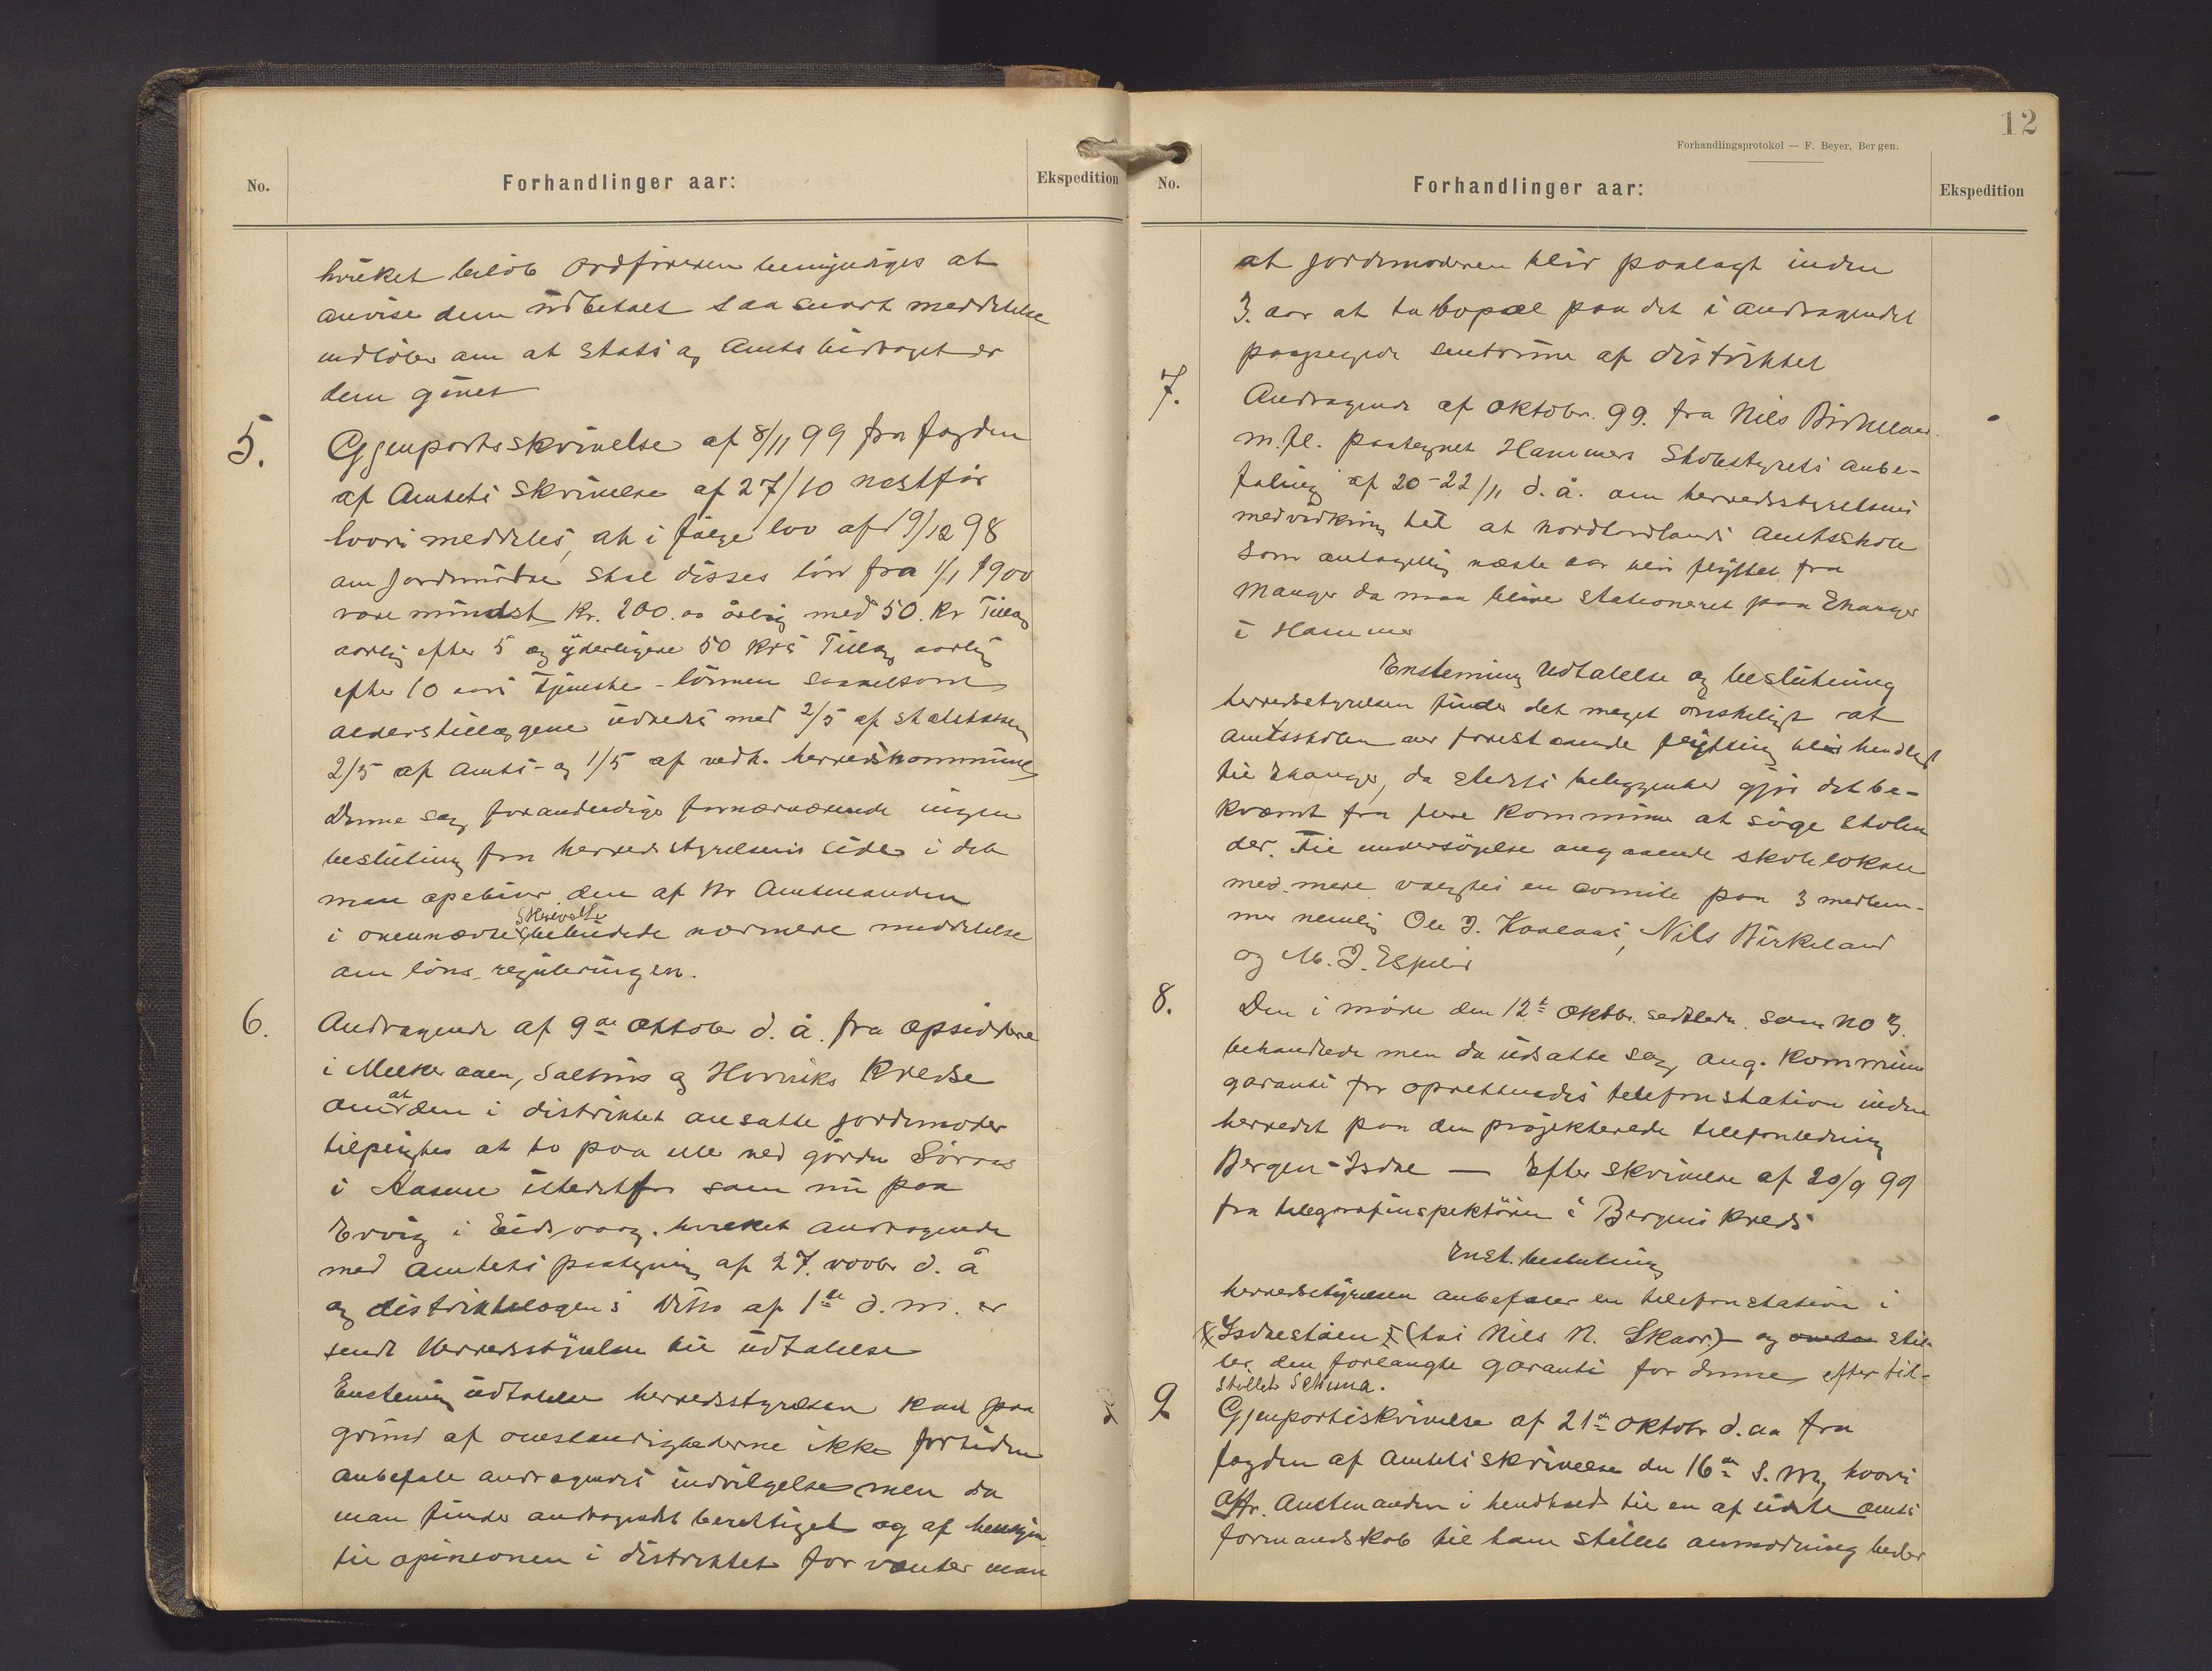 No.
Forhandlinger aar:
Ekspedition
hvilket beløb Ordføreren bemyndiges at
anvise dem udbetalt saasnart meddelelse
indløber om at Stats og Amts bidraget er
dem givet
5.
Gjenpartsskrivelse af 8/11 99 fra fogden
af Amtets skrivelse af 27/10 næstfør
hvori meddeles, at i følge lov af 19/12 98
om Jordmødre skal disses løn fra 1/1 1900
være mindst Kr. 200.00 årlig med 50. Kr Tillæg
aarlig efter 5 og yderligere 50 Krs Tillæg aarlig
efter 10 aars Tjeneste - lønnen saavelsom
alderstillæggene udredes med 2/5 af statskassen
2/5 af Amts- og 1/5 af vedk. herredskommune
Denne sag foranlediger fornærværende ingen
beslutning fra herredsstyrelsens side i det
man opebier den af Hr Amtmanden
i ovennævnte skrivelse bebudede nærmere meddelelse
om løns-reguleringen.
6.
Andragende af 9de Oktober d. å. fra Opsidderne
i Melkeraaen, Salhus og Horviks Kredse
om at den i distriktet ansatte jordmoder
tilpligtes at bo paa eller ved gården
i Aasene istedetfor som nu paa
Ervig i Eidsvaag. hvilket andragende
med amtets paategning af 27. novbr d. å
og distriktslægens Ditto af 1ste d. m. er
sendt Herredsstyrelsen til udtalelse
Enstemig udtalelse herredsstyrelsen kan paa
grund af omstændighederne ikke fortiden
anbefale andragendes indvilgelse men da
man finder andragendet berettiget og af hensyn
til opinionen i distriktet forventer man
12
Forhandlingsprotokol — F. Beyer, Bergen.
No.
Forhandlinger aar:
Ekspedition
at jordmoderen blir paalagt inden
3. aar at ta bopæl paa det i andragendet
paapegede sentrum af distriktet
7.
Andragende af Oktobr. 99. fra Nils Birkeland
m. fl. paategnet Hammers Skolestyrets anbe-
faling af 20-22/11 d. å. om herredsstyrelsens
medvirkning til at Nordhordlands Amtsskole
som antagelig næste aar blir flyttet fra
Manger da maa blive stationeret paa Eknanger
i Hammer
Enstemig Udtalelse og beslutning
herredsstyrelsen finder det meget ønskeligt at
amtsskolen ver forestaaende flytning blir henlagt
til Eknanger, da stedets beliggenhed gjør det be-
kvæmt fra flere Kommuner at søge skolen
der. Til undersøgelse angaaende skolelokale
med mere vælges en comite paa 3 medlem-
mer nemlig Ole J. Kaalaas, Nils Birkeland
og M. J. Espelid
8.
Den i møde den 12te Oktbr. sedstleden som No 3.
behandlede men da udsatte sag ang. Kommune
garanti for oprettendes telefonstation inden
herredet paa den projekterede telefonledning
Bergen-Isdal — Efter skrivelse af 20/9 99
fra telegrafinspektøren i Bergens Kreds
Enst. beslutning
herredsstyrelsen anbefaler en telefonstation i
Isdalstøen (hos Nils N. Skaar.) og stil-
ler den forlangte garanti for denne efter til-
stillet Schema.
9
Gjenpartsskrivelse af 21de Oktobr d. aa fra
fogden af Amtets skrivelse den 16de s. M, hvori
Hr. Amtmanden i henhold til en af sidste amts
formandskab til ham stillet anmodning beder